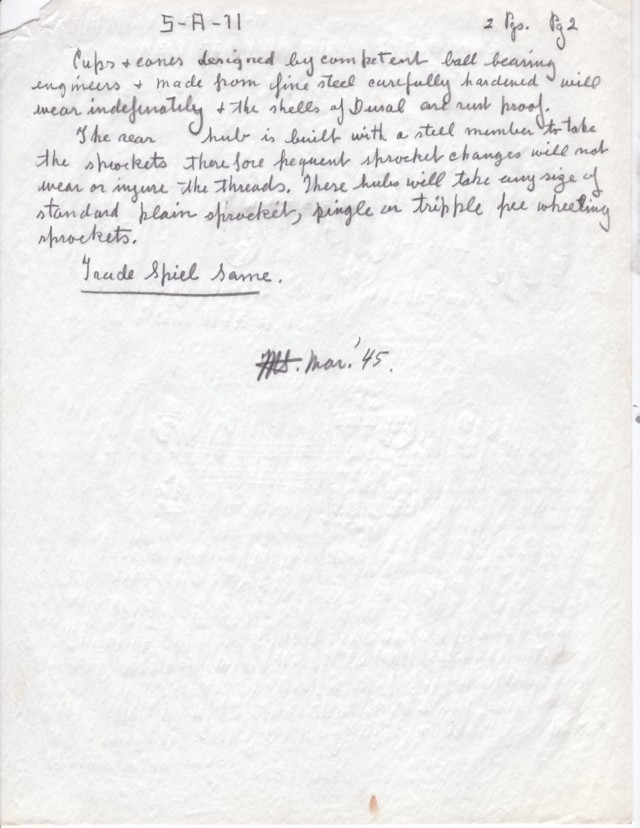 5-A-11 2 Pgs. Pg 2
Cups & cones designed by competent ball bearing
engineers & made from fine steel carefully hardened will
wear indefinately & the shells of Dural are rust proof.
The rear hub is built with a steel member to take
the sprockets therefore frequent sprocket changes will not
wear or injure the threads. These hubs will take any size of
standard plain sprocket, single or tripple free wheeling
sprockets.
Trade Spiel Same.
Mar.' 45.